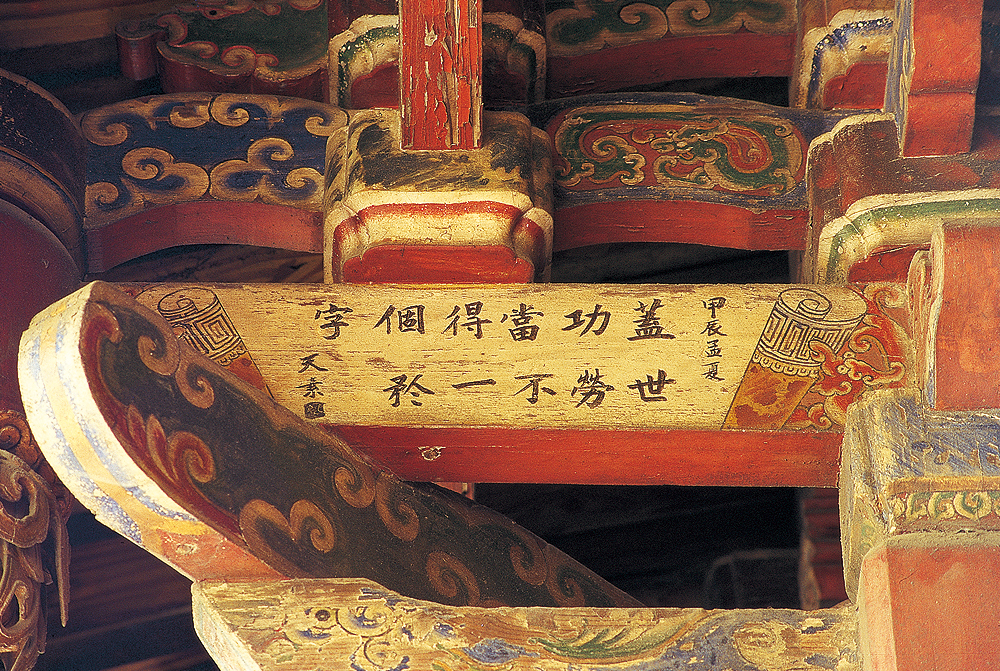 甲辰孟夏
蓋世
功勞
當不
得一
個矜
字
天